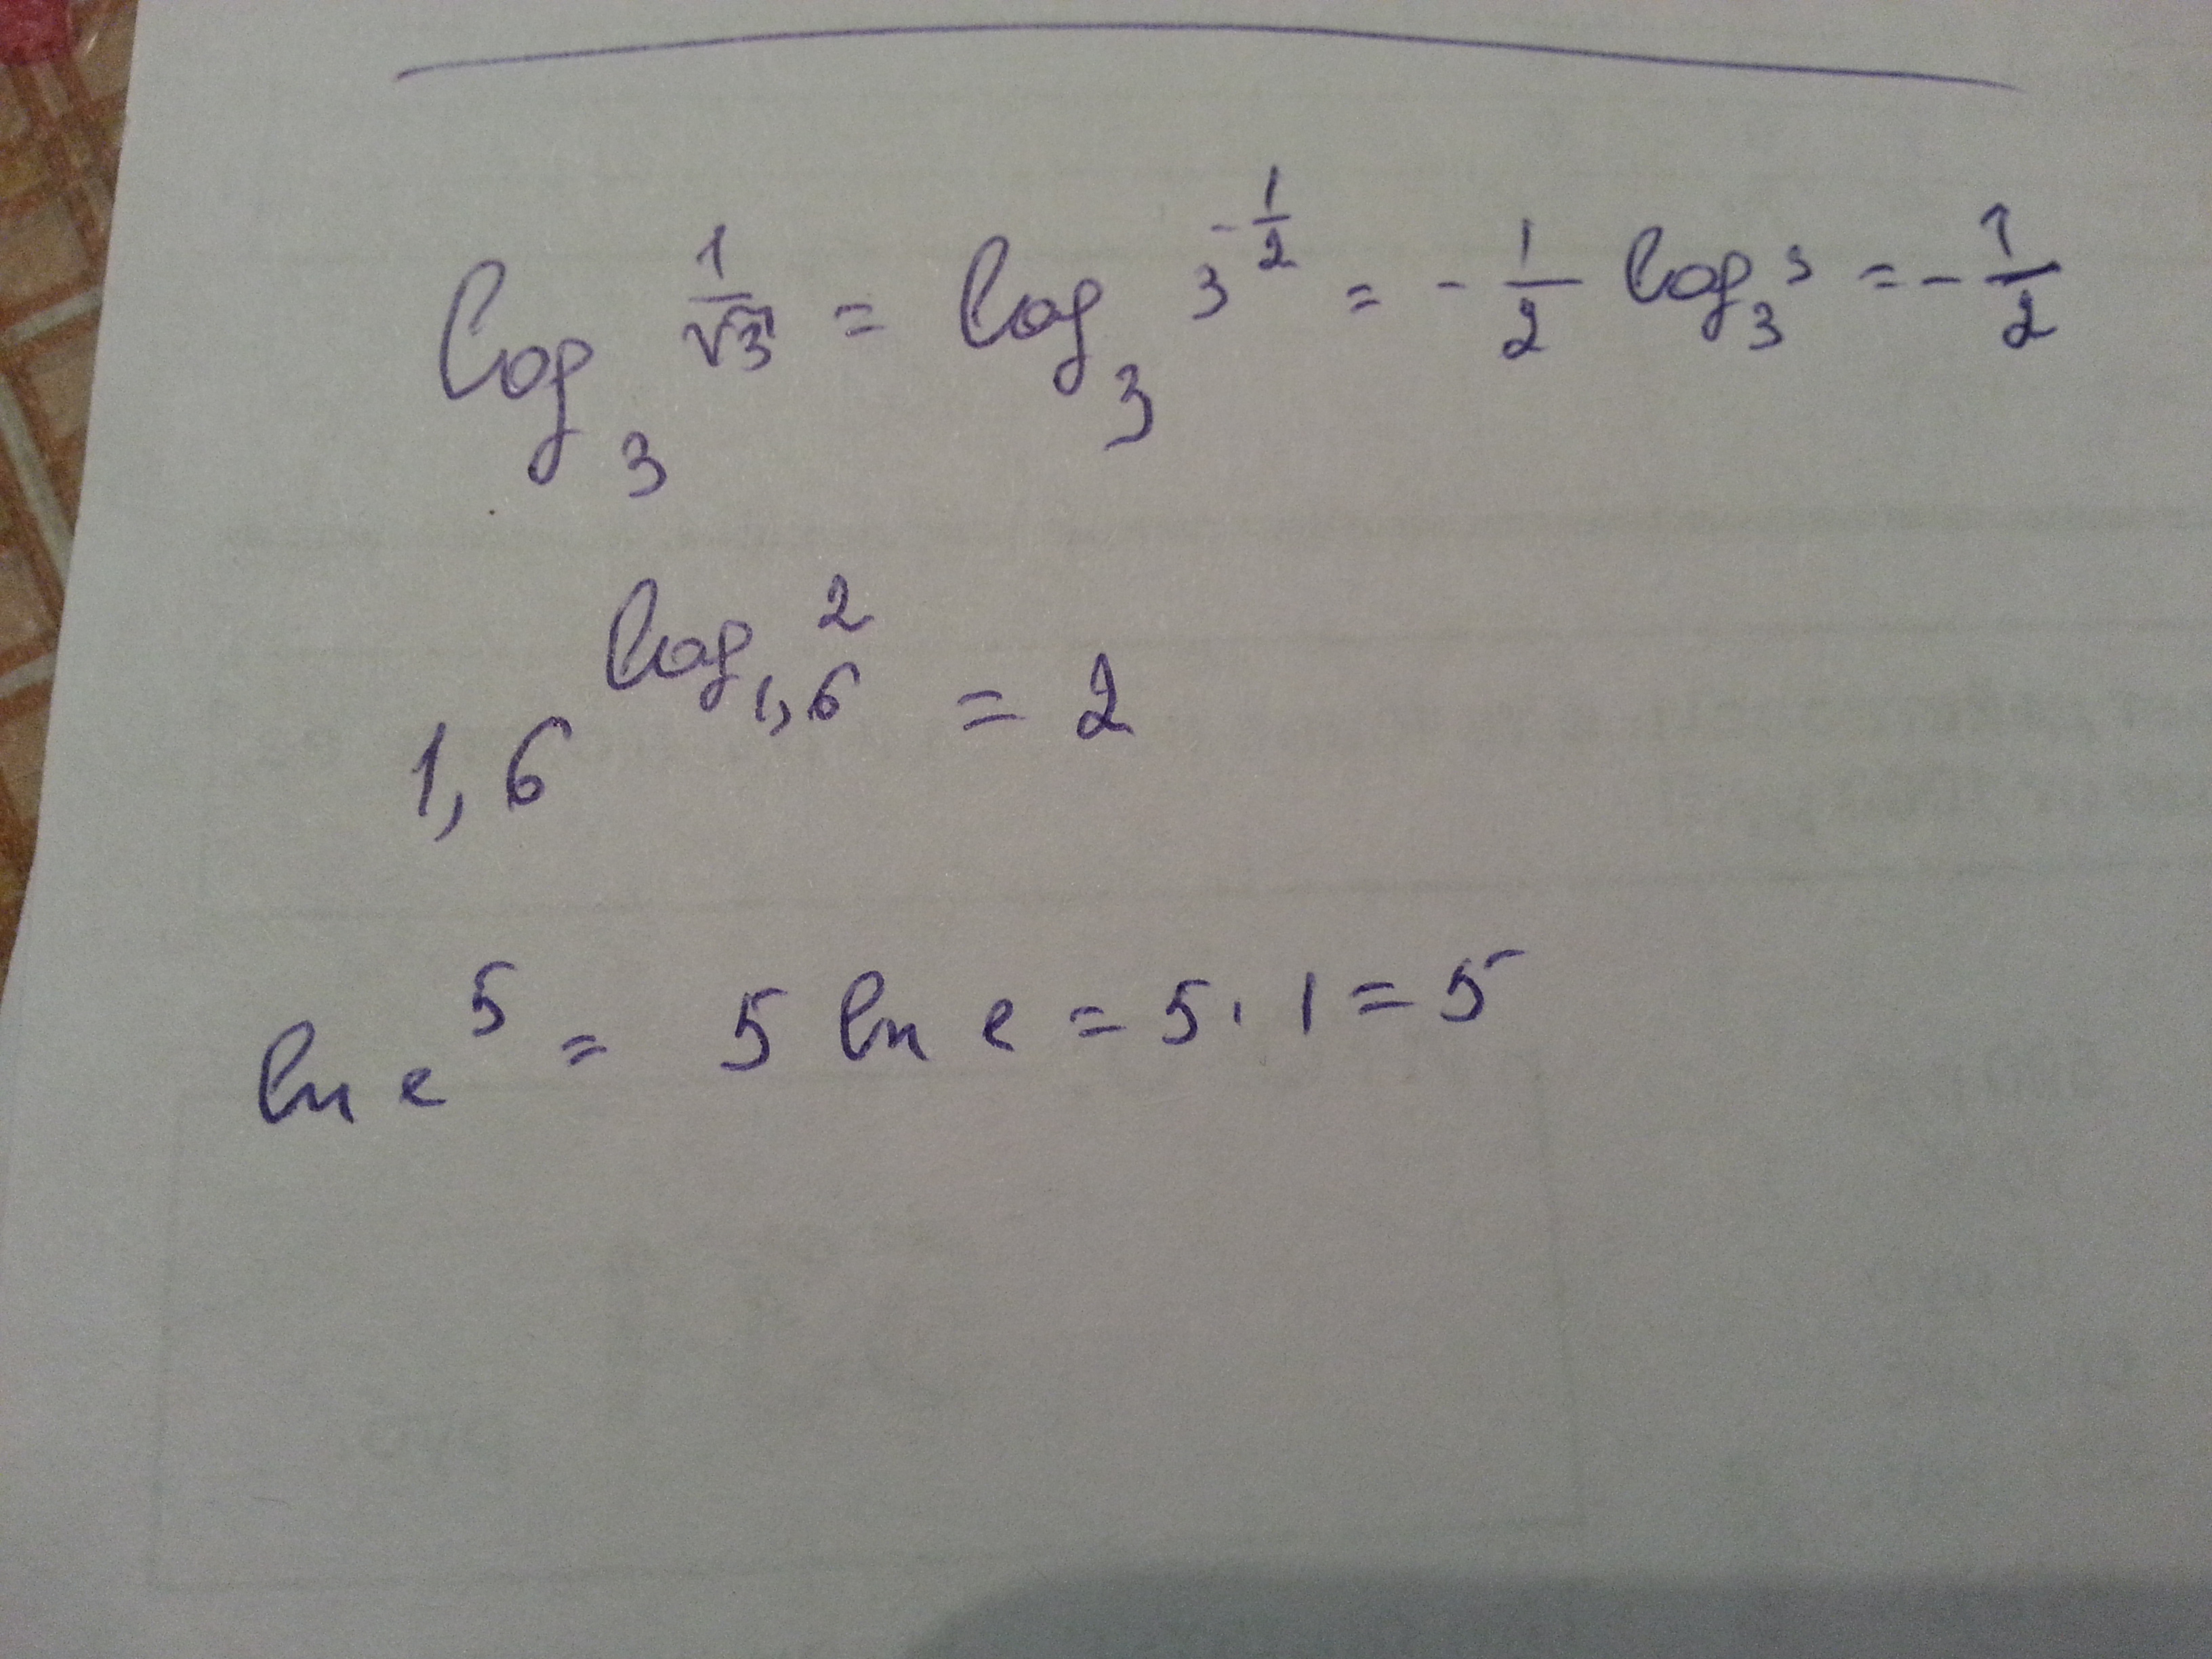 log₃ 1/√3 = log₃ 3^(-1/2) = - 1/2 log₃ 3 = - 1/2
1,6^(log₁,₆ 2) = 2
ln e⁵ = 5 ln e = 5 · 1 = 5